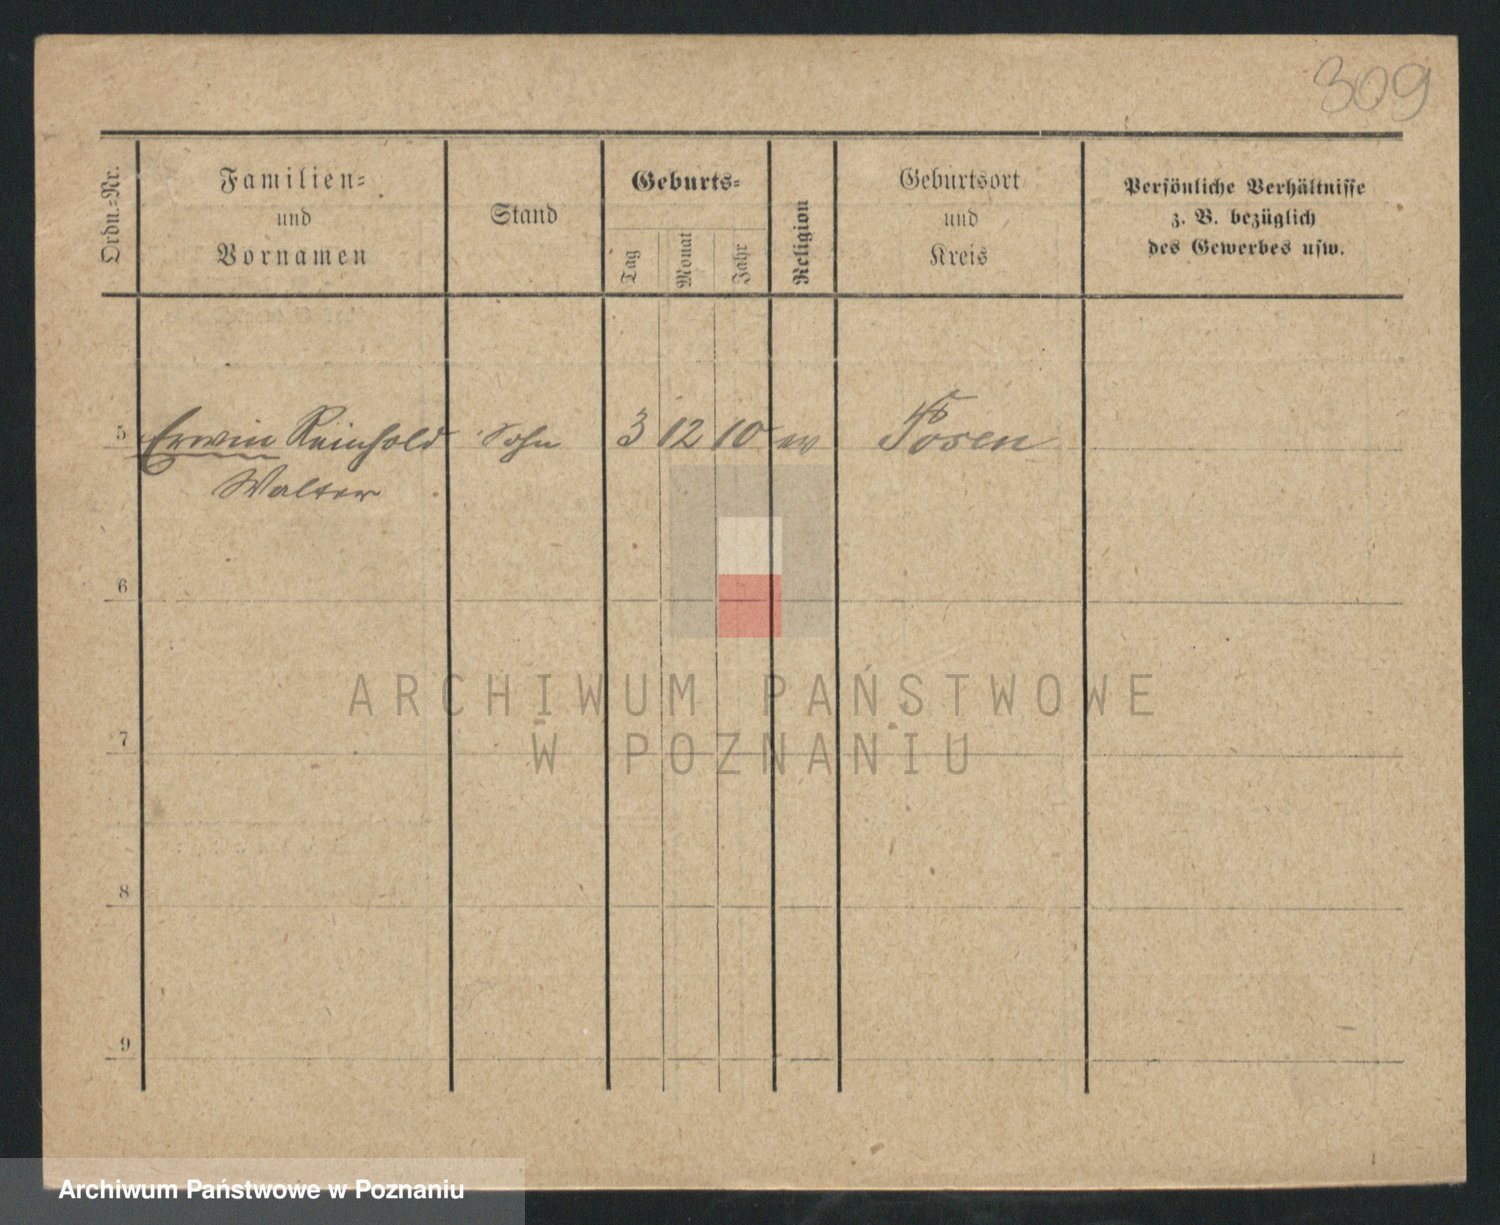 309
Ordn.-Nr.
Familien-
und
Vornamen
Stand
Geburts-
Tag
Monat
Jahr
Religion
Geburtsort
und
Kreis
Persönliche Verhältnisse
z. B. bezüglich
des Gewerbes usw.
5 Erwin Reinhold Sohn 3 12 10 ev Posen
Walter
6
7
8
9
ARCHIWUM PAŃSTWOWE
W POZNANIU
Archiwum Państwowe w Poznaniu